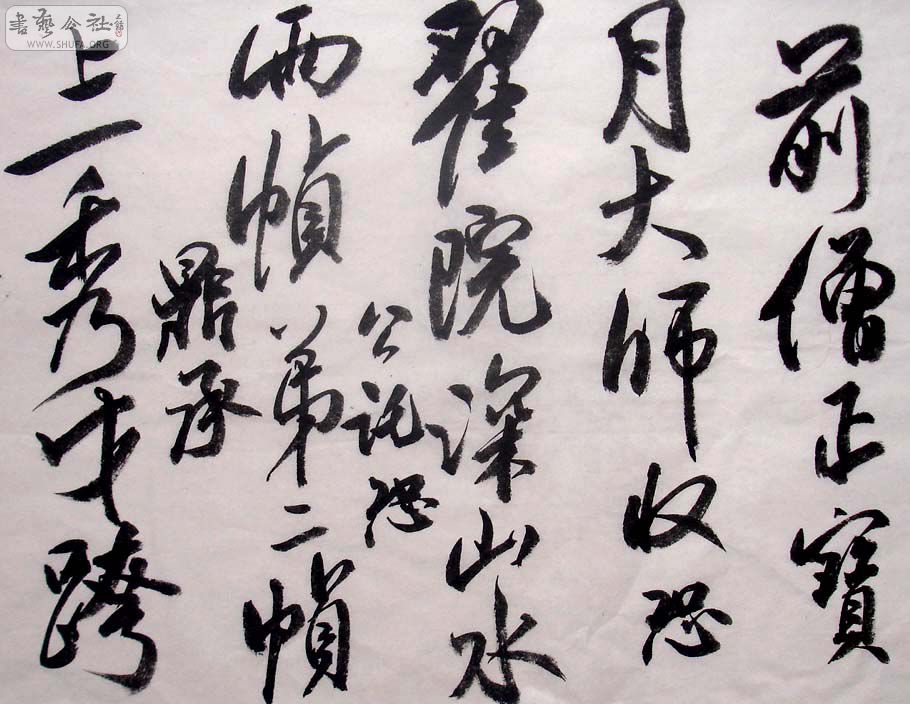 書藝公社
WWW.SHUFA.ORG
前僧正寶
月大師收恐
翟院深山水
公託恐
兩幀第二幀
鼎承
上一秀才跨